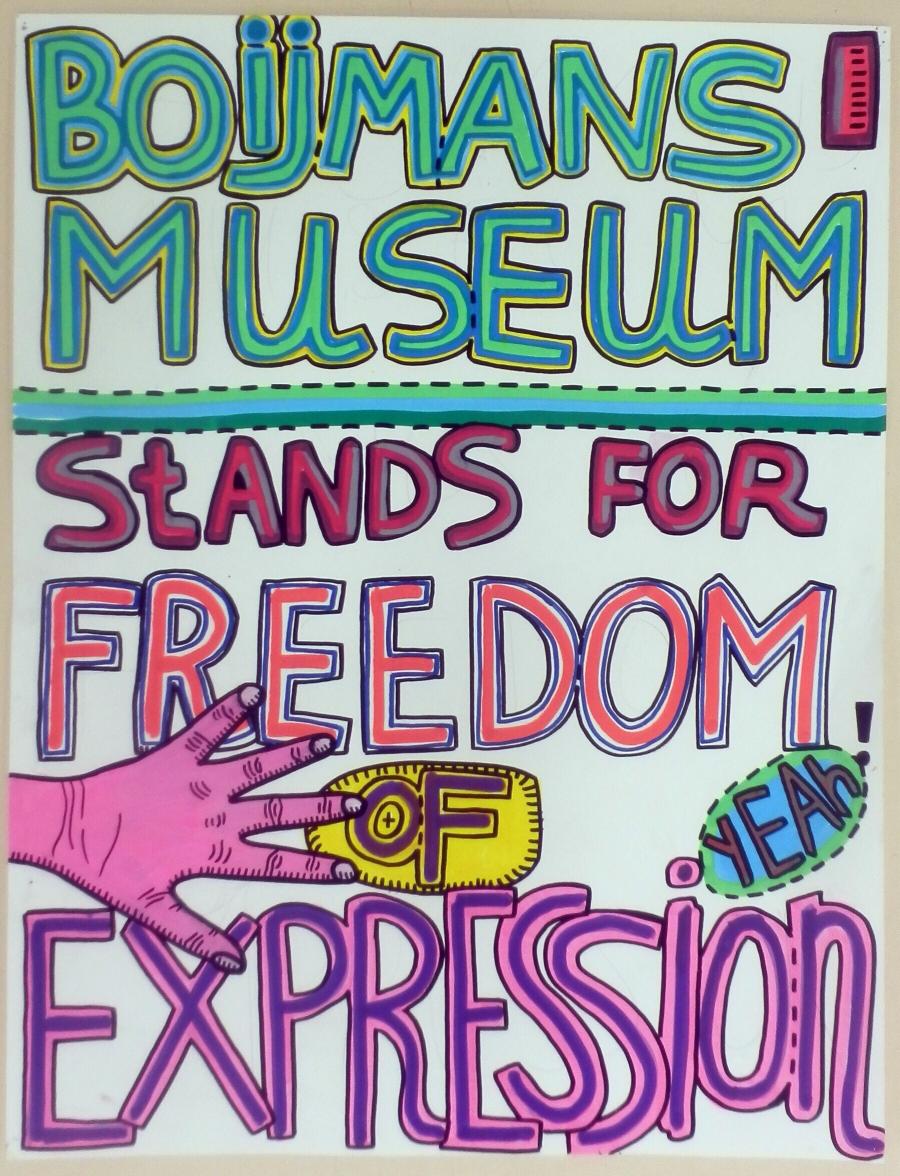 BOijMANS
MUSEUM
StANDS FOR
FREEDOM
OF
YEAh!
EXPRESSion